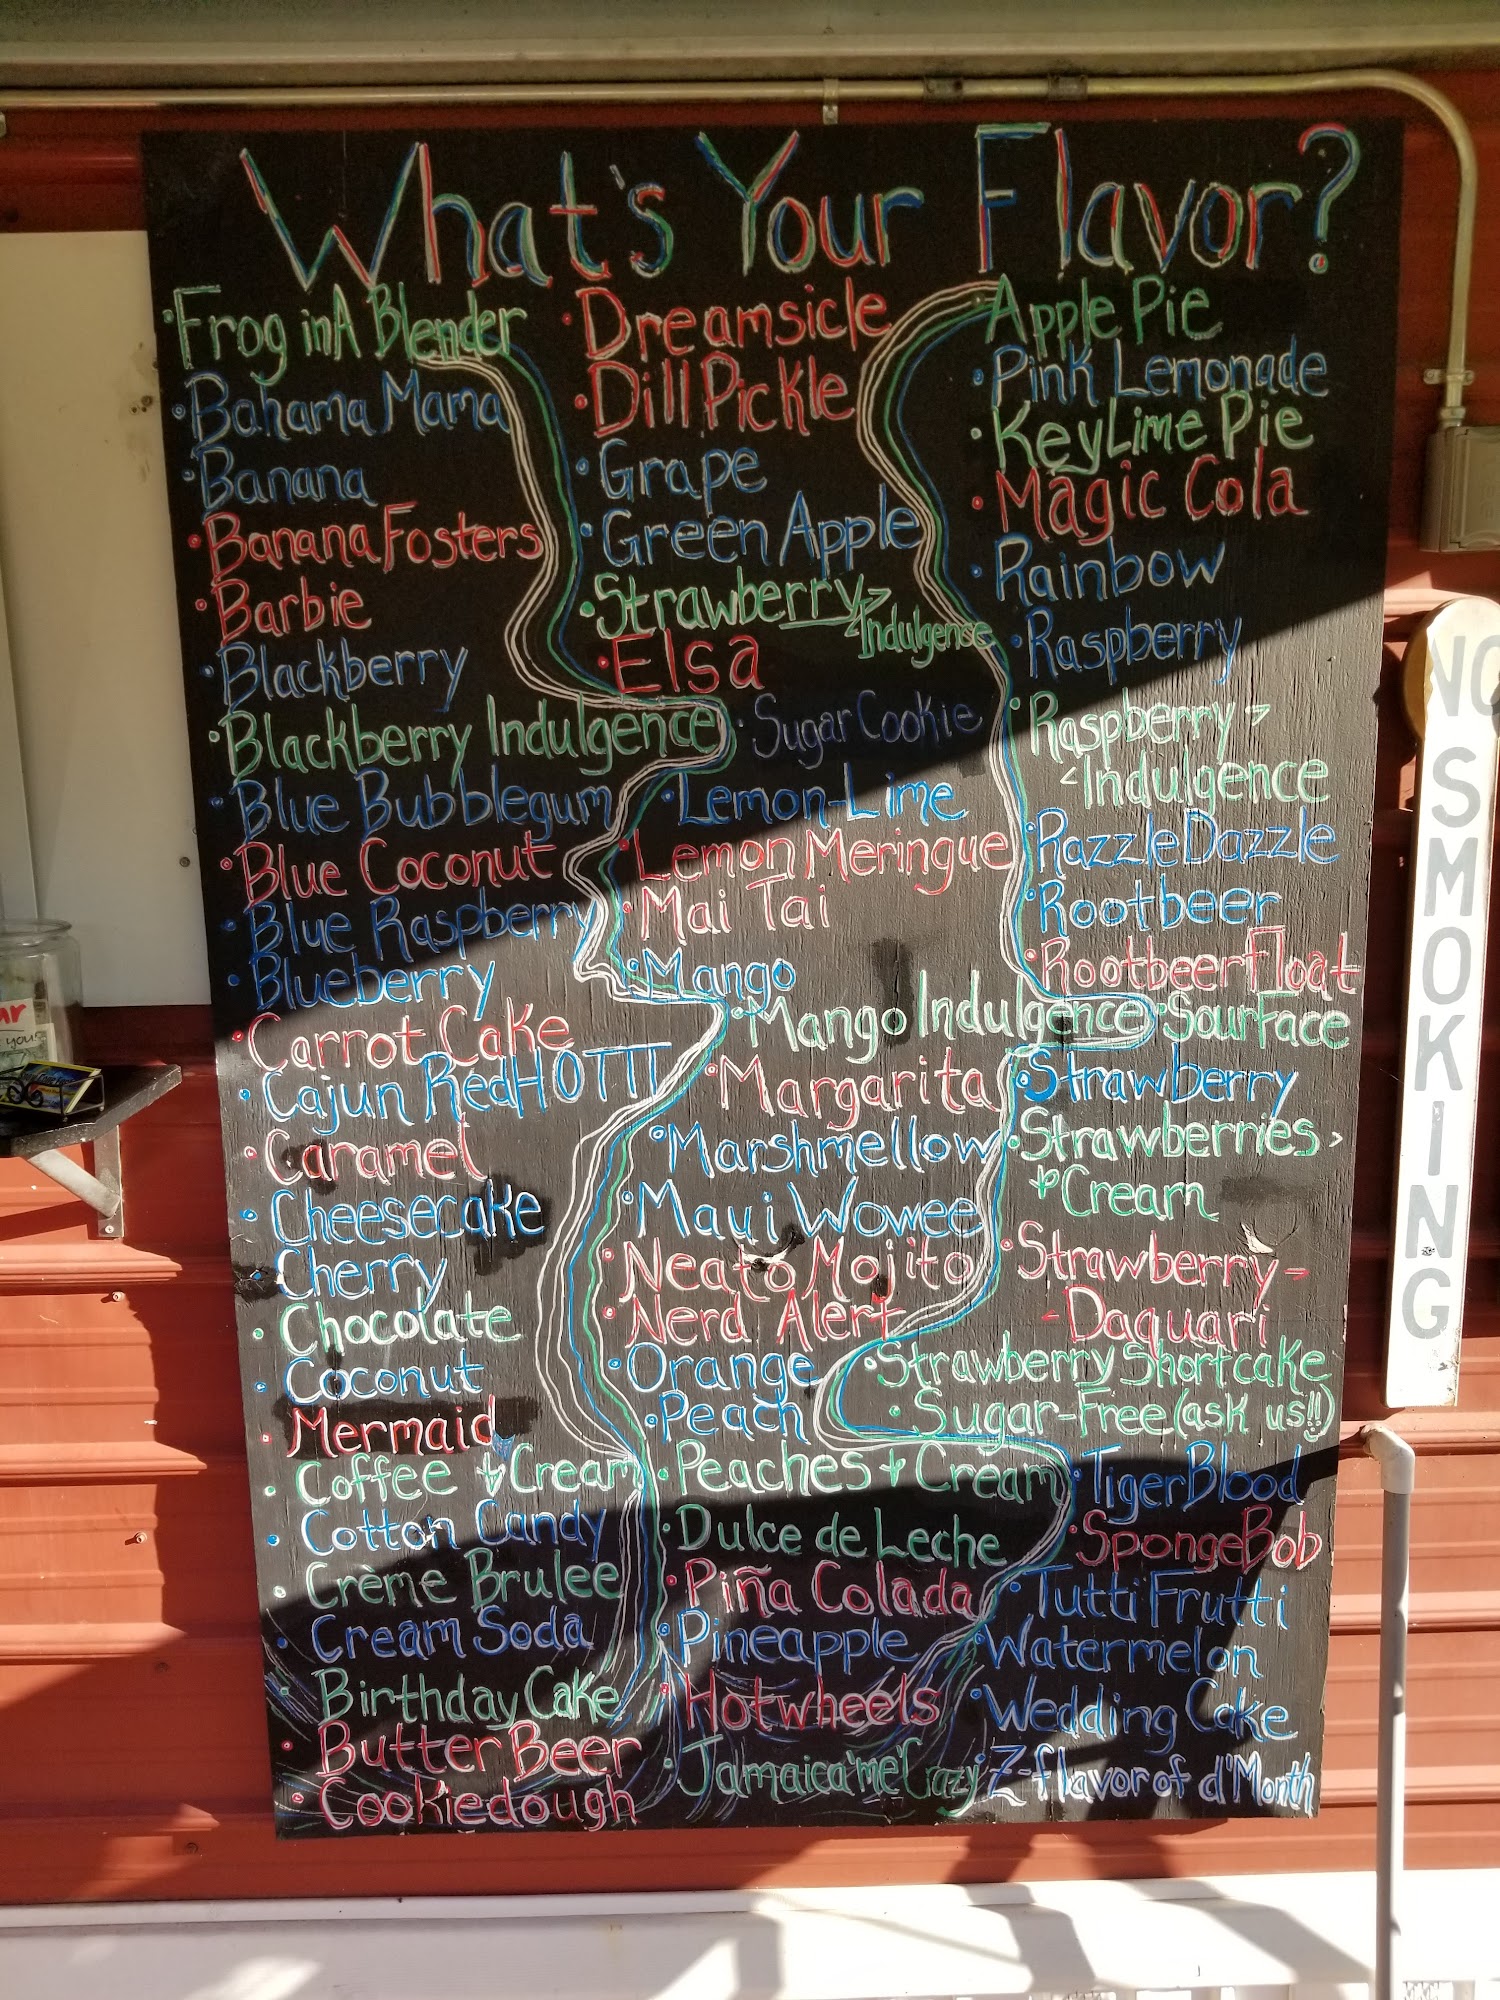 What's Your Flavor?
Frog in A Blender
Bahama Mama
Banana
Banana Fosters
Barbie
Blackberry
Blackberry Indulgence
Blue Bubblegum
Blue Coconut
Blue Raspberry
Blueberry
Carrot Cake
Cajun RedHOTTT
Caramel
Cheesecake
Cherry
Chocolate
Coconut
Mermaid
Coffee + Cream
Cotton Candy
Crème Brulee
Cream Soda
Birthday Cake
Butter Beer
Cookiedough
Dreamsicle
Dill Pickle
Grape
Green Apple
Strawberry>
<Indulgence
Elsa
Sugar Cookie
Lemon-Lime
Lemon Meringue
Mai Tai
Mango
Mango Indulgence
Margarita
Marshmellow
Maui Wowee
Neato Mojito
Nerd Alert
Orange
Peach
Peaches + Cream
Dulce de Leche
Piña Colada
Pineapple
Hotwheels
Jamaica'me'Crazy
Apple Pie
Pink Lemonade
Key Lime Pie
Magic Cola
Rainbow
Raspberry
Raspberry>
<Indulgence
Razzle Dazzle
Rootbeer
Rootbeer Float
SourFace
Strawberry
Strawberries>
+Cream
Strawberry-
-Daquari
Strawberry Shortcake
Sugar-Free (ask us!!)
TigerBlood
SpongeBob
Tutti Frutti
Watermelon
Wedding Cake
Z-flavor of d'Month
NO SMOKING
you!